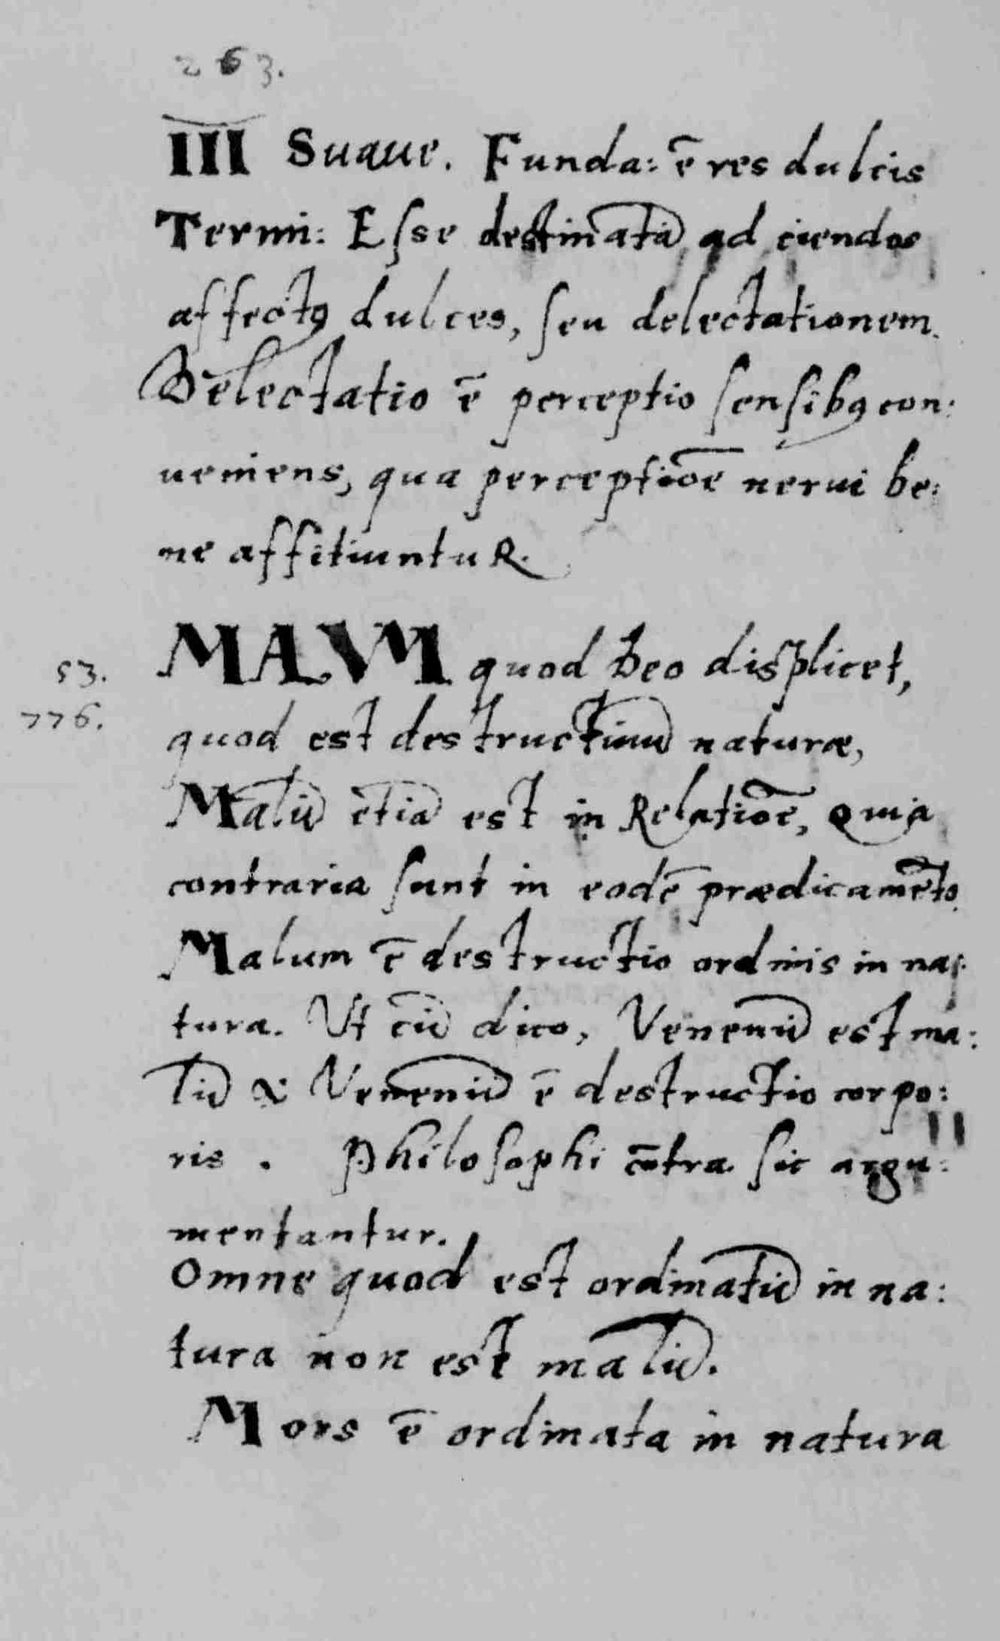 263.
III Suaue. Funda: ē res dulcis
Termi: Eſse destinatā ad ciendos
affectꝰ dulces, ſeu delectationem.
Delectatio ē perceptio ſenſibꝰ con:
ueniens, qua perceptiōe nerui be:
ne affitiuntuR.
MALVM quod Deo diſplicet,
53.
776.
quod est destructiuū naturæ,
Malū etiā est in Relatiōe, Quia
contraria ſunt in eodē prædicamēto.
Malum ē destructio ordinis in na:
tura. Ut cū dico, Venenū est ma:
lū & Venenū ē destructio corpo:
ris . Philoſophi cōtra ſic argu:
mentantur.
Omne quod est ordinatū in na:
tura non est malū.
Mors ē ordinata in natura